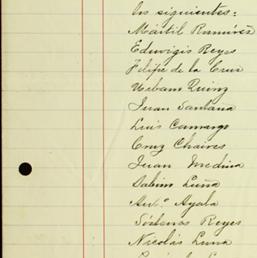 los siguientes:
Mártil Ramírez
Eduvigis Reyes
Felipe de la Cruz
Urbam Quiroz
Juan Santana
Luis Camargo
Cruz Chaires
Juan Medina
Sabim Luna
Anto. Ayala
Reyes
Nicolás Luna